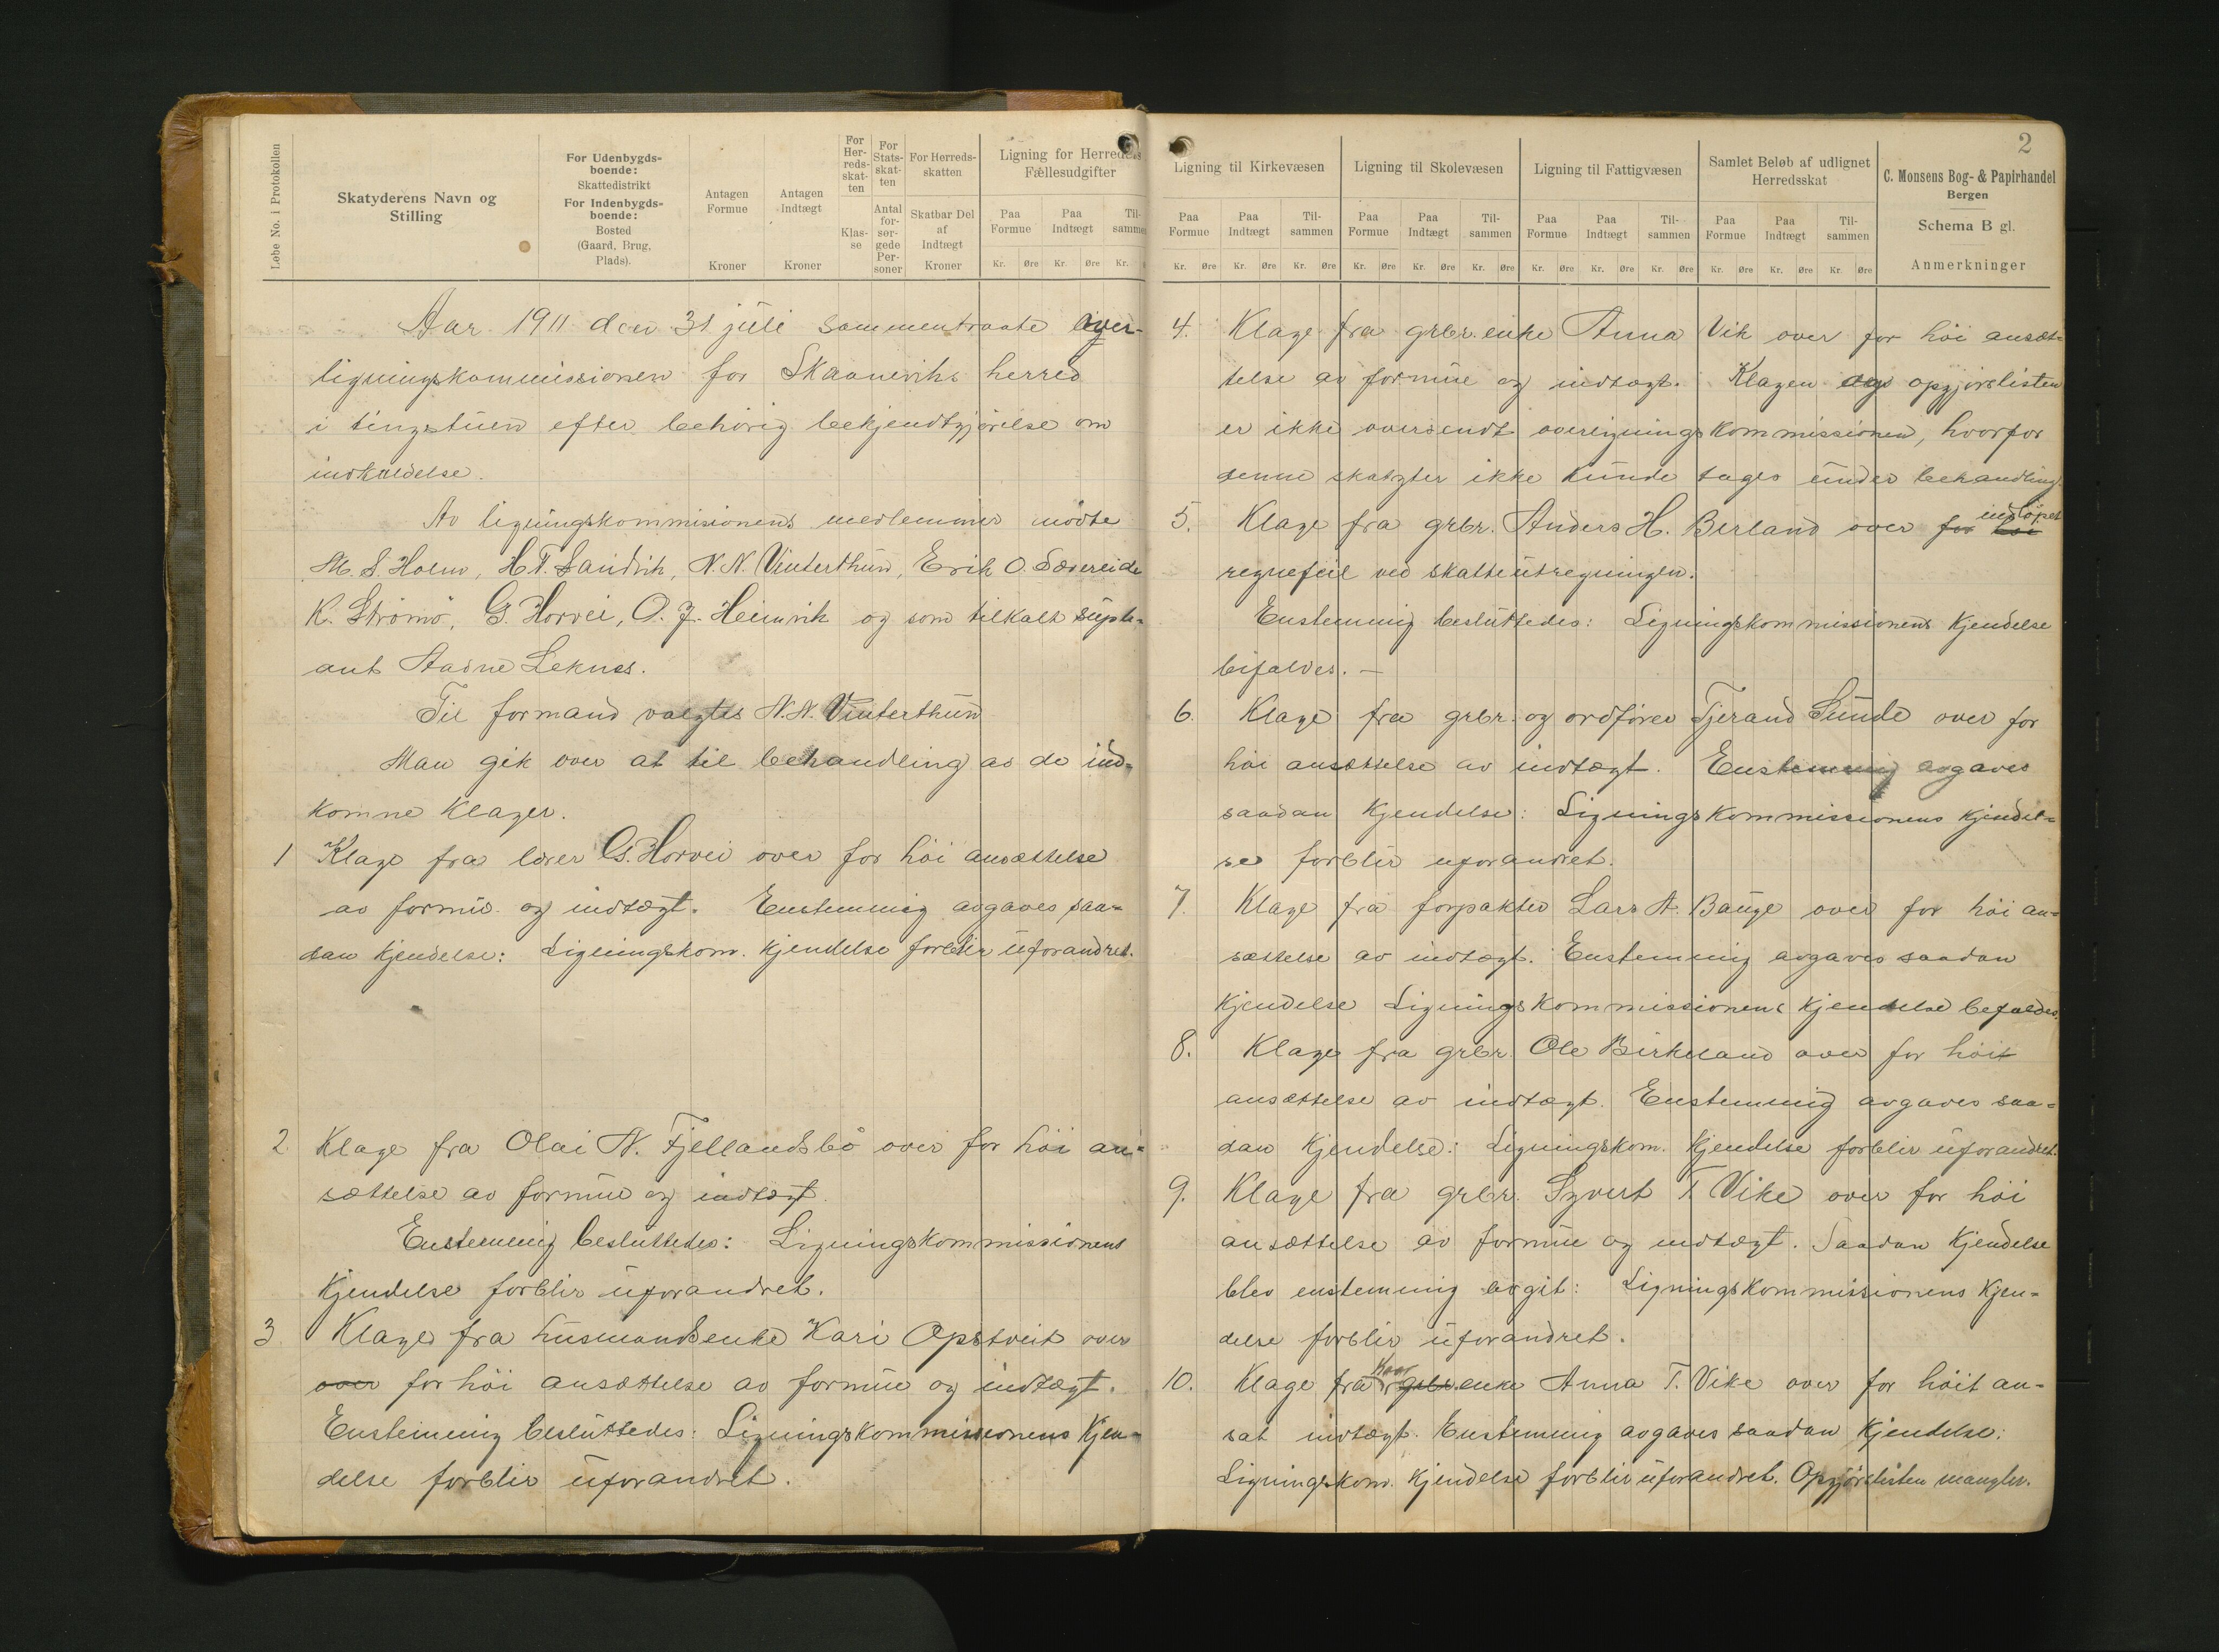 Løbe No. i Protokollen
Skatyderens Navn og
Stilling
For Udenbygds-
boende:
Skattedistrikt
For Indenbygds-
boende:
Bosted
(Gaard, Brug,
Plads).
Antagen
Formue
Kroner
Antagen
Indtægt
Kroner
For
Her-
reds-
skat-
ten
Klas-
se
For
Stats-
skat-
ten
Antal
for-
sør-
gede
Per-
soner
For Herreds-
skatten
Skatbar Del
af
Indtægt
Kroner
Ligning for Herredets
Fællesudgifter
Paa
Formue
Paa
Indtægt
Til-
sammen
Kr. Øre Kr. Øre Kr.
Aar 1911 den 31 juli sammentraate over-
ligningskommissionen for Skaaneviks herred
i tingstuen efter behörig bekjendtgjörelse om
indkaldelse.
Av ligningskommisionens medlemmer mödte
M. S. Holm, H. T. Sandvik, N. N. Vinterthun, Erik O. Sævereide
K. Strömö, G. Horvei, O. J. Heimvik og som tilkalt suple-
ant Aadne Leknes.
Til formand valgtes N. N. Vinterthun
Man gik over at til behandling av de ind-
komne klager.
1 Klage fra lærer G. Horvei over for höi ansættelse
av formue og indtægt. Enstemmig avgaves saa-
dan kjendelse: Ligningskom. kjendelse forblir uforandret.
2 Klage fra Olai N. Fjellandsbö over for höi an-
sættelse av formue og indtægt.
Enstemmig besluttedes: Ligningskommissionens
kjendelse forblir uforandret.
3 Klage fra husmandsenke Kari Opstveit over
over for höi ansættelse av formue og indtægt.
Enstemmig besluttedes: Ligningskommissionens kjen-
delse forblir uforandret.
2
Ligning til Kirkevæsen
Ligning til Skolevæsen
Ligning til Fattigvæsen
Samlet Beløb af udlignet
Herredsskat
C. Monsens Bog- & Papirhandel
Bergen
Schema B gl.
Anmerkninger
Paa
Formue
Paa
Indtægt
Til-
sammen
Paa
Formue
Paa
Indtægt
Til-
sammen
Paa
Formue
Paa
Indtægt
Til-
sammen
Paa
Formue
Paa
Indtægt
Til-
sammen
Kr. Øre Kr. Øre Kr. Øre Kr. Øre Kr. Øre Kr. Øre Kr. Øre Kr. Øre Kr. Øre Kr. Øre Kr. Øre Kr. Øre
4. Klage fra grbr. enke Anna Vik over for höi ansæt-
telse av formue og indtægt. Klagen opgjörslisten
er ikke oversendt overligningskommissionen, hvorfor
denne skatyter ikke kunde tages under behandling.
5. Klage fra grbr. Anders H. Berland over for höi indlöpet
regnefeil ved skatteutregningen.
Enstemmig besluttedes: Ligningskommissionens kjendelse
bifaldes. —
6. Klage fra grbr. og ordförer Tjerand Sunde over for
höi ansættelse av indtægt. Enstemmig avgaves
saadan kjendelse: Ligningskommissionens kjendel-
se forblir uforandret.
7. Klage fra forpakter Lars A. Bauge over for höi an-
sættelse av indtægt. Enstemmig avgaves saadan
kjendelse Ligningskommissionens kjendelse befaldes.
8. Klage fra grbr. Ole Birkeland over for höit
ansættelse av indtægt. Enstemmig avgaves saa-
dan kjendelse: Ligningskom. kjendelse forblir uforandret.
9. Klage fra grbr. Syvert T. Vike over for höi
ansættelse av formue og indtægt. Saadan kjendelse
blev enstemmig avgit: Ligningskommissionens kjen-
delse forblir uforandret.
10. Klage fra kaar grbr. enke Anna T. Vike over for höit an-
sat indtægt. Enstemmig avgaves saadan kjendelse:
Ligningskom. kjendelse forblir uforandret. Opgjörslisten mangler.